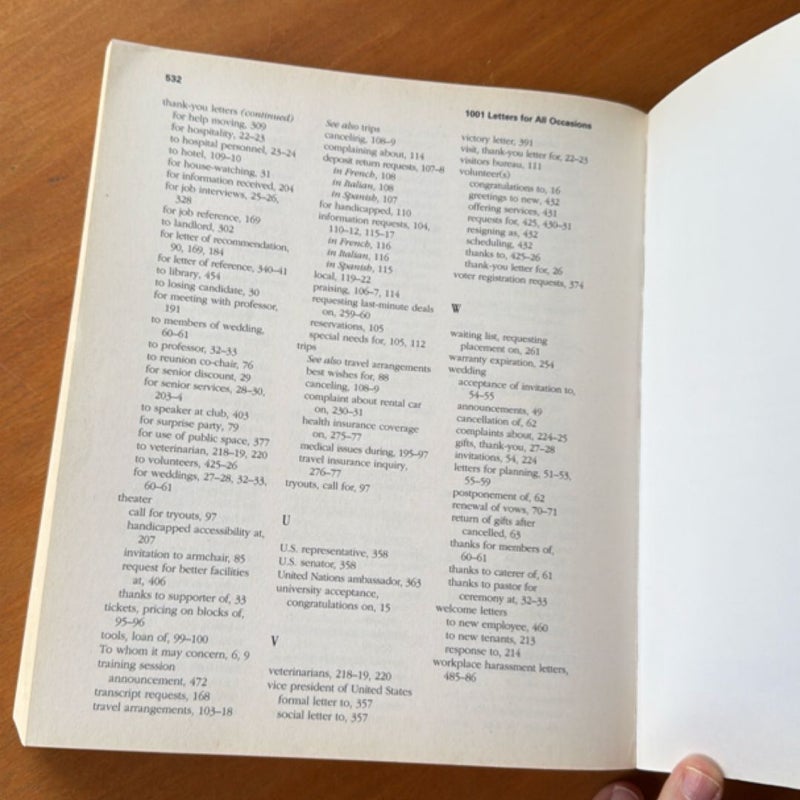 532
1001 Letters for All Occasions
thank-you letters (continued)
for help moving, 309
for hospitality, 22–23
to hospital personnel, 23–24
to hotel, 109–10
for house-watching, 31
for information received, 204
for job interviews, 25–26,
328
for job reference, 169
to landlord, 302
for letter of recommendation,
90, 169, 184
for letter of reference, 340–41
to library, 454
to losing candidate, 30
for meeting with professor,
191
to members of wedding,
60–61
to professor, 32–33
to reunion co-chair, 76
for senior discount, 29
for senior services, 28–30,
203–4
to speaker at club, 403
for surprise party, 79
for use of public space, 377
to veterinarian, 218–19, 220
to volunteers, 425–26
for weddings, 27–28, 32–33,
60–61
theater
call for tryouts, 97
handicapped accessibility at,
207
invitation to armchair, 85
request for better facilities
at, 406
thanks to supporter of, 33
tickets, pricing on blocks of,
95–96
tools, loan of, 99–100
To whom it may concern, 6, 9
training session
announcement, 472
transcript requests, 168
travel arrangements, 103–18
See also trips
canceling, 108–9
complaining about, 114
deposit return requests, 107–8
in French, 108
in Italian, 108
in Spanish, 107
for handicapped, 110
information requests, 104,
110–12, 115–17
in French, 116
in Italian, 116
in Spanish, 115
local, 119–22
praising, 106–7, 114
requesting last-minute deals
on, 259–60
reservations, 105
special needs for, 105, 112
trips
See also travel arrangements
best wishes for, 88
canceling, 108–9
complaint about rental car
on, 230–31
health insurance coverage
on, 275–77
medical issues during, 195–97
travel insurance inquiry,
276–77
tryouts, call for, 97
U
U.S. representative, 358
U.S. senator, 358
United Nations ambassador, 363
university acceptance,
congratulations on, 15
V
veterinarians, 218–19, 220
vice president of United States
formal letter to, 357
social letter to, 357
victory letter, 391
visit, thank-you letter for, 22–23
visitors bureau, 111
volunteer(s)
congratulations to, 16
greetings to new, 432
offering services, 431
requests for, 425, 430–31
resigning as, 432
scheduling, 432
thanks to, 425–26
thank-you letter for, 26
voter registration requests, 374
W
waiting list, requesting
placement on, 261
warranty expiration, 254
wedding
acceptance of invitation to,
54–55
announcements, 49
cancellation of, 62
complaints about, 224–25
gifts, thank-you, 27–28
invitations, 54, 224
letters for planning, 51–53,
55–59
postponement of, 62
renewal of vows, 70–71
return of gifts after
cancelled, 63
thanks for members of,
60–61
thanks to caterer of, 61
thanks to pastor for
ceremony at, 32–33
welcome letters
to new employee, 460
to new tenants, 213
response to, 214
workplace harassment letters,
485–86